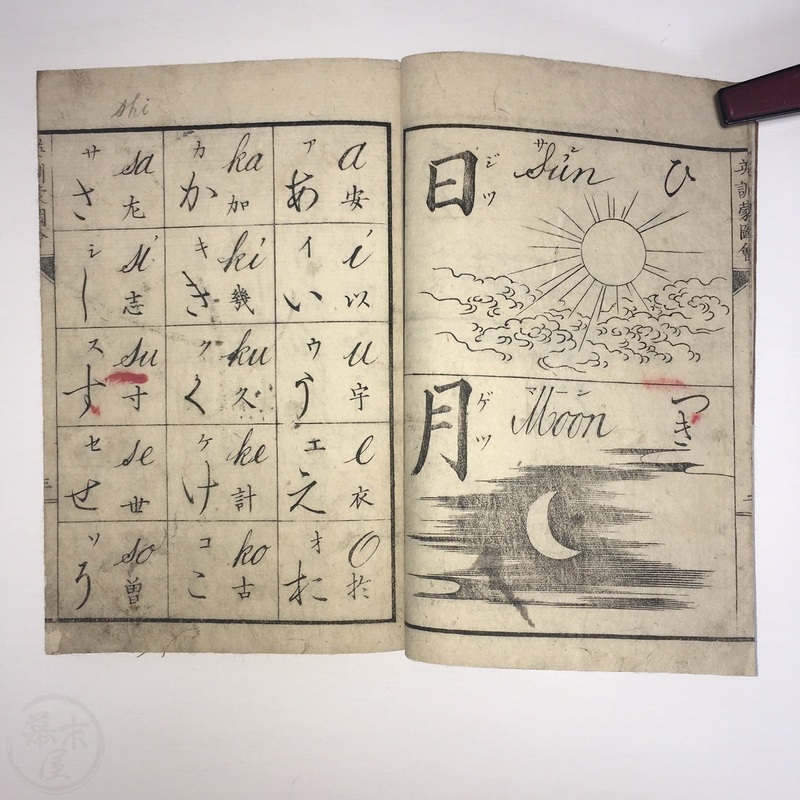 英訓蒙圖會
ひ
サン
Sun
ジツ
日
つき
マーン
Moon
ゲツ
月
shi
a 安
ア あ
i 以
イ い
u 宇
ウ う
e 衣
エ え
o 於
オ お
ka 加
カ か
ki 幾
キ き
ku 久
ク く
ke 計
ケ け
ko 古
コ こ
sa 左
サ さ
si 志
シ し
su 寸
ス す
se 世
セ せ
so 曽
ソ そ
幕末屋